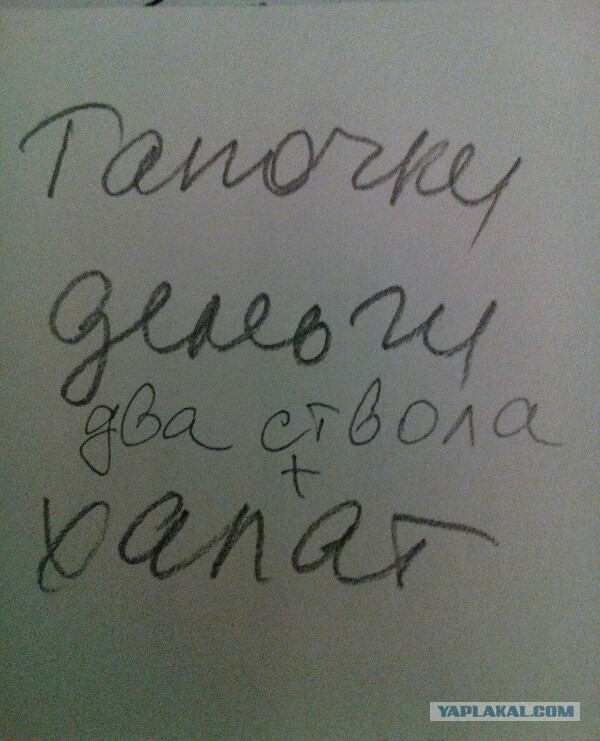 Тапочки
деньги
два ствола
+
халат
YAPLAKAL.COM